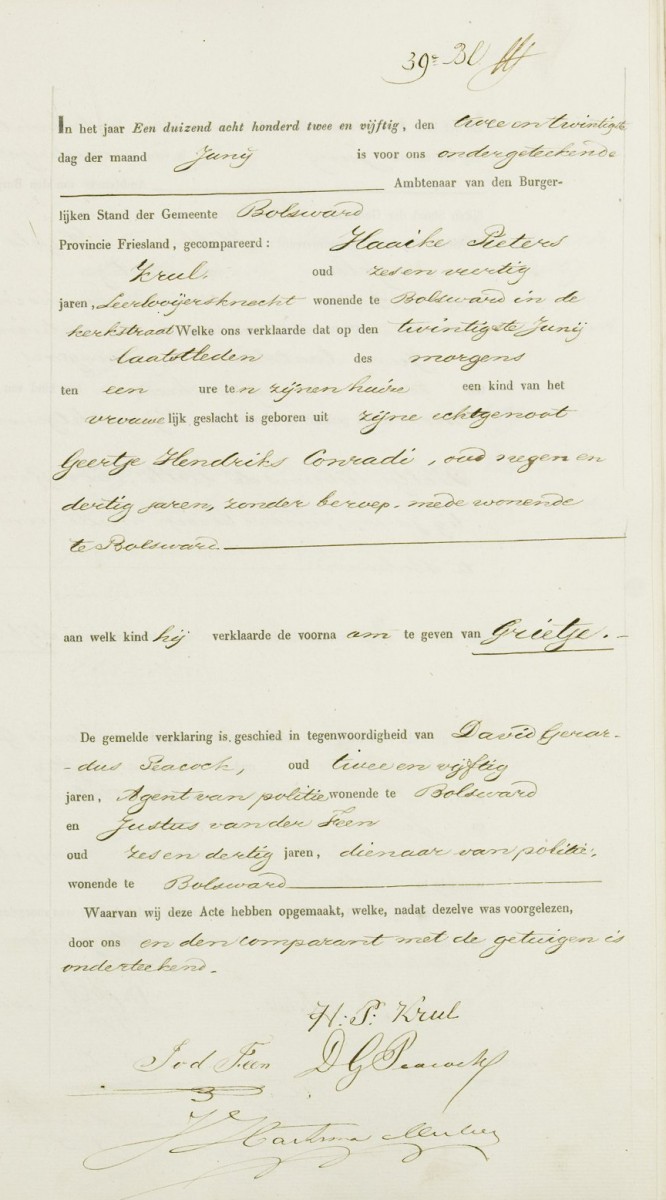 39e Bl
In het jaar Een duizend acht honderd twee en vijftig, den twee en twintigste
dag der maand Junij is voor ons ondergeteekende
Ambtenaar van den Burger-
lijken Stand der Gemeente Bolsward
Provincie Friesland, gecompareerd: Haaike Pieters
Krul. oud zes en veertig
jaren, Leerlooijersknecht wonende te Bolsward in de
kerkstraat Welke ons verklaarde dat op den twintigste Junij
laatstleden des morgens
ten een ure ten zijnen huize een kind van het
vrouwelijk geslacht is geboren uit zijne echtgenoot
Geertje Hendriks Conradi, oud negen en
dertig jaren, zonder beroep, mede wonende
te Bolsward
aan welk kind hij verklaarde de voornaam te geven van Grietje.
De gemelde verklaring is geschied in tegenwoordigheid van David Gerar-
-dus Peacock, oud twee en vijftig
jaren, Agent van politie wonende te Bolsward
en Justus van der Feen
oud zes en dertig jaren, dienaar van politie,
wonende te Bolsward
Waarvan wij deze Acte hebben opgemaakt, welke, nadat dezelve was voorgelezen,
door ons en den comparant met de getuigen is
onderteekend.
H: P: Krul
J v d Feen D G Peacock